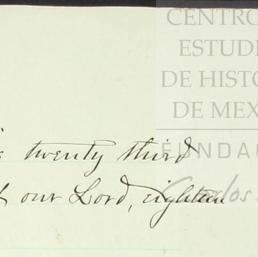 CENTRO
ESTUDI
DE HISTO
DE MEX
FUNDAC
Carlos
twenty third
our Lord, eighteen